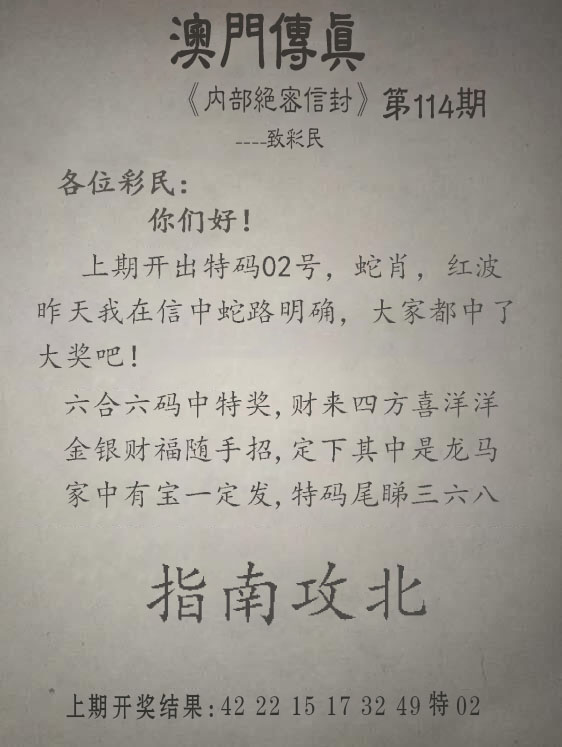 澳門傳眞
《内部絕密信封》第114期
----致彩民
各位彩民：
你们好！
上期开出特码02号，蛇肖，红波
昨天我在信中蛇路明确，大家都中了
大奖吧！
六合六码中特奖,财来四方喜洋洋
金银财福随手招,定下其中是龙马
家中有宝一定发,特码尾睇三六八
指南攻北
上期开奖结果:42 22 15 17 32 49 特 02